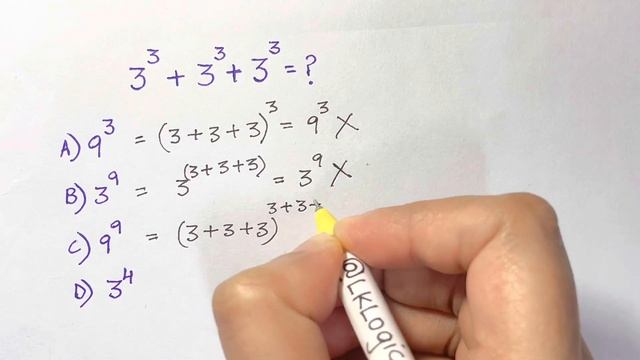 3³ + 3³ + 3³ = ?
A) 9³ = (3+3+3)³ = 9³ X
B) 3⁹ = 3⁽³⁺³⁺³⁾ = 3⁹ X
C) 9⁹ = (3+3+3)³⁺³⁺
D) 3⁴
@LKLogic